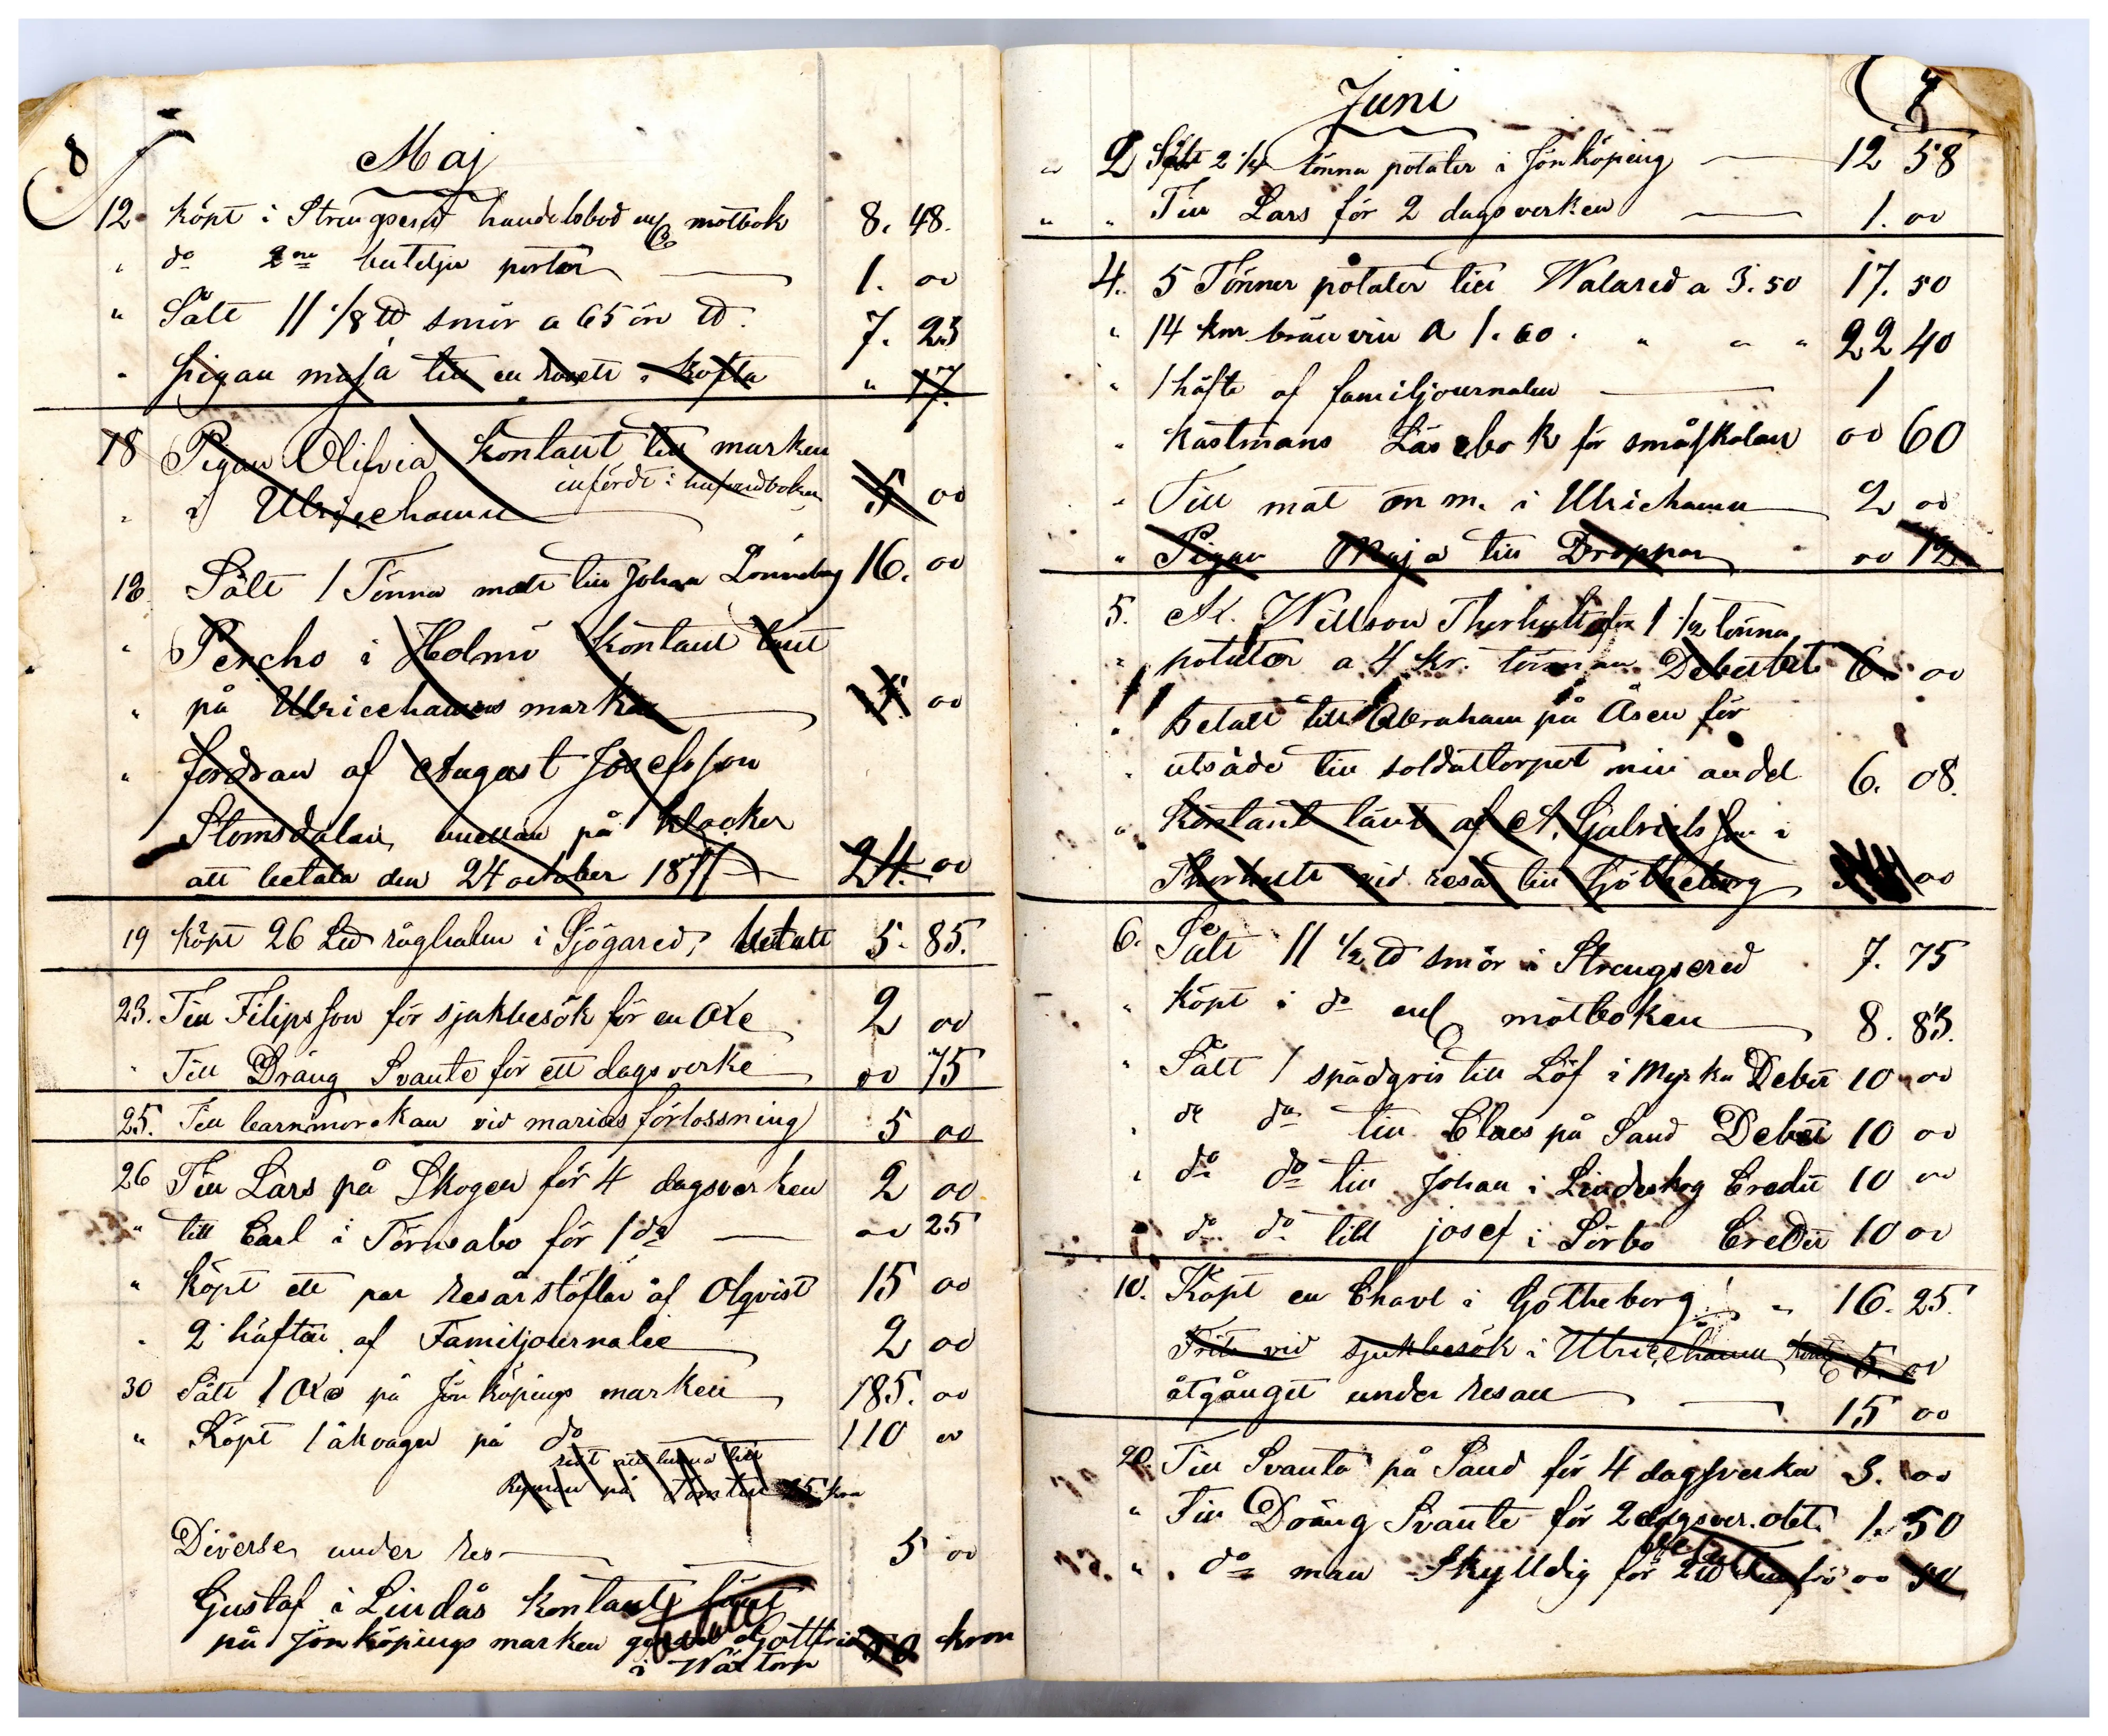 8
Maj
12 köpt i Strengsered handelsbod enl motbok 8. 48.
" do 2ne buteljer porter 1. 00
" Sålt 11 1/8 ℔ smör a 65 öre ℔. 7. 23
" pigan maja till en i kofta " 17.
18 Pigan Olifvia kontant till marken
infördt i husardboken
" i Ulricehamn 5 00
18 Sålt 1 Tönna malt till Johan Lönneberg 16. 00
" Percho i Holmö kontant lånt
" på Ulricehamns marken 00
" fordran af August Josefsson
Stomsdalen, på klockor
att betala den 24 october 1877 24. 00
19 köpt 26 L℔ råghalm i Sjögared, betalt 5. 85.
23. Till Filipsson för sjukbesök för en Oxe 2 00
" Till Dräng Svante för ett dagsverke 00 75
25. Till barnmorskan vid marias förlossning 5 00
26 Till Lars på Skogen för 4 dagsverken 2 00
" till Carl i Törnsabo för 1 do 00 25
" köpt ett par resårstöflar af Olqvist 15 00
" 2 häften af Familjournalen 2 00
30 Sålt 1 Oxe på Jönköpings marken 185. 00
" Köpt 1 åkvagn på do 110 00
rest att lemna till
Ryman på Tomten 25 kro
Diverse under res 5 00
Gustaf i Lindås kontant lånt
betalt
på Jönköpings marken genom Gottfrid 50 kron
i Wäxtorp
Juni
" 2 Sålt 2 1/4 tönna potater i Jönköping 12 58
" " Till Lars för 2 dagsverken 1. 00
4. 5 Tönner potater till Walared a 3.50 17. 50
" 14 knr bränvin a 1.60. " " " 22 40
" 1 häfte af familjournalen 1
" Kastmans Läsebok för småskolan 00 60
" Till mat m m. i Ulricehamn 2 00
" Pigan Maja till Droppar " 00 12
5. Thorhult 1 1/2 tönna
" potater a 4 kr. tönnan Debetert 6. 00
" Betalt till Abraham på Åsen för
" utsäde till soldattorpet min andel 6. 08.
" Kontant lånt af A. Gabrielsson i
Thorhult vid resa till Götheborg 00
6. Sålt 11 1/2 ℔ smör i Strengsered 7. 75
" köpt i do enl motboken 8. 83.
" Sålt 1 spädgris till Löf i Myrka Debet 10 00
" do do till Claes på Sand Debet 10 00
" do do till Johan i Lindeskog Credit 10 00
" do do till josef i Sörbo Credit 10 00
10. Köpt en Chavl i Götheborg! " 16. 25.
Frits vid sjukbesök i Ulricehamn 5. 00
åtgånget under resan 15 00
20. Till Svante på Sand för 4 dagsverken 3. 00
" Till Dräng Svante för 2 1. 50
betalt
" " do man Skylldig för 2 ℔ 00 50